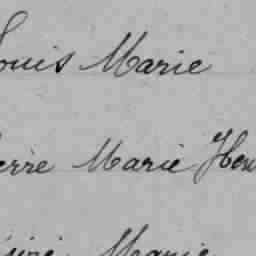 Louis Marie
erre Marie Hen
Marie